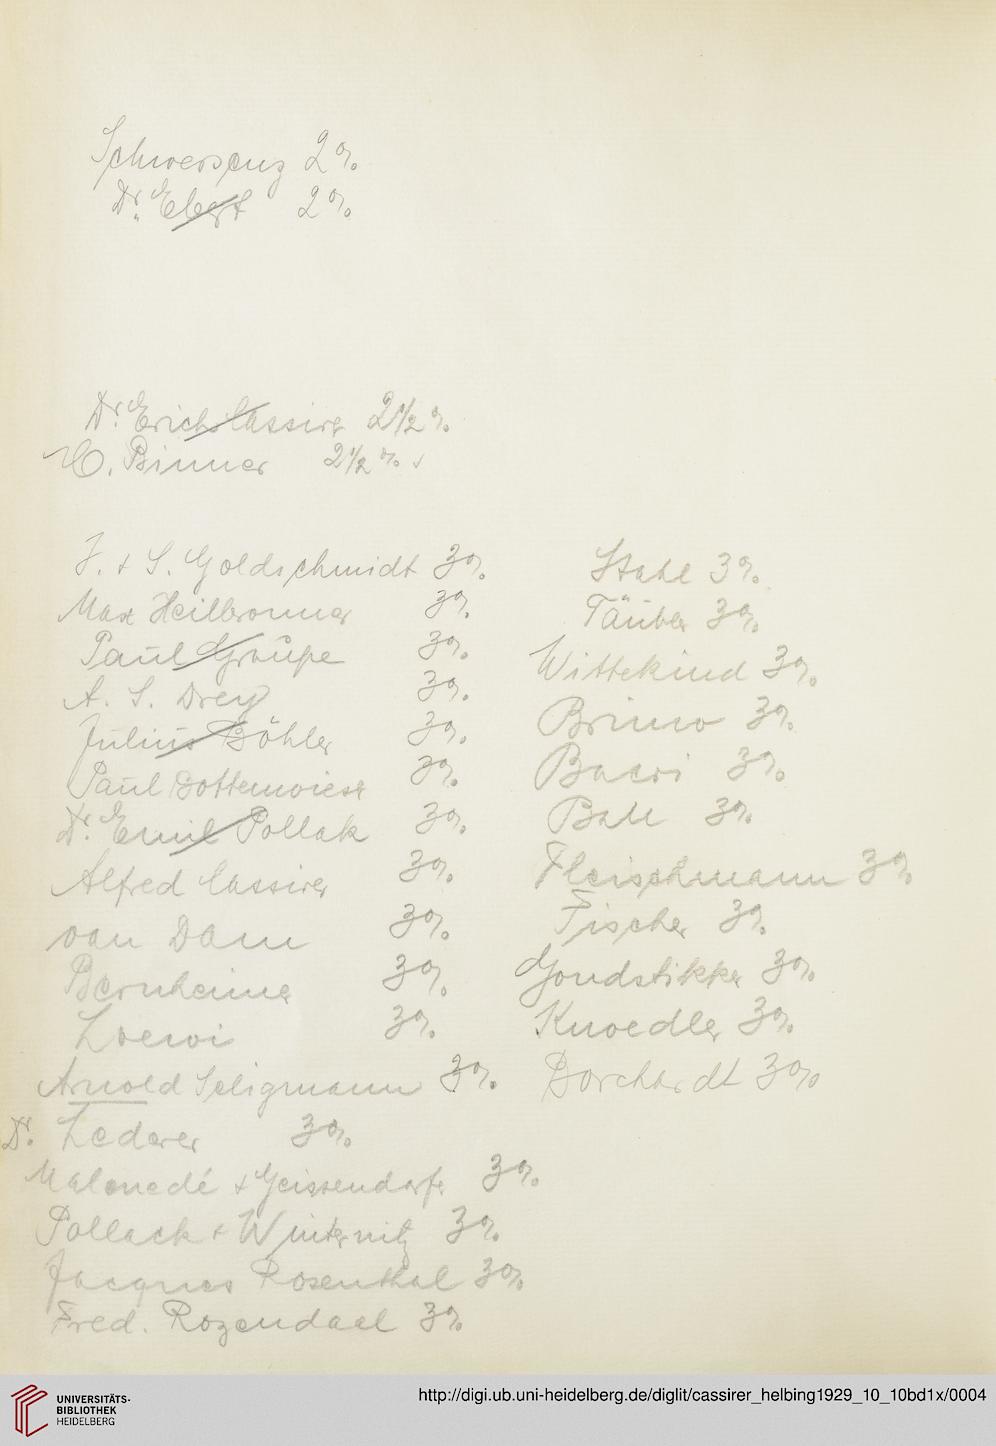 Schwersenz 2%
Dr. Ebert 2%
Dr. Erich Cassirer 2 1/2 %
Binner 2 1/2 %
J. + S. Goldschmidt 3%
Max Heilbronner 3%
Paul Graupe 3%
A. S. Drey 3%
Julius Böhler 3%
Paul Bottenwieser 3%
Dr. Emil Pollak 3%
Alfred Cassirer 3%
van Dam 3%
Bernheimer 3%
Loewi 3%
Arnold Seligmann 3%
Dr. Lederer 3%
Malmedé + Geissendorfer 3%
Pollack + Winternitz 3%
Jacques Rosenthal 3%
Fred. Rozendaal 3%
Stahl 3%
Täuber 3%
Wittekind 3%
3%
Bacri 3%
Ball 3%
Fleischmann 3%
Fischer 3%
Goudstikker 3%
Knoedler 3%
Borchardt 3%
UNIVERSITÄTS-
BIBLIOTHEK
HEIDELBERG
http://digi.ub.uni-heidelberg.de/diglit/cassirer_helbing1929_10_10bd1x/0004